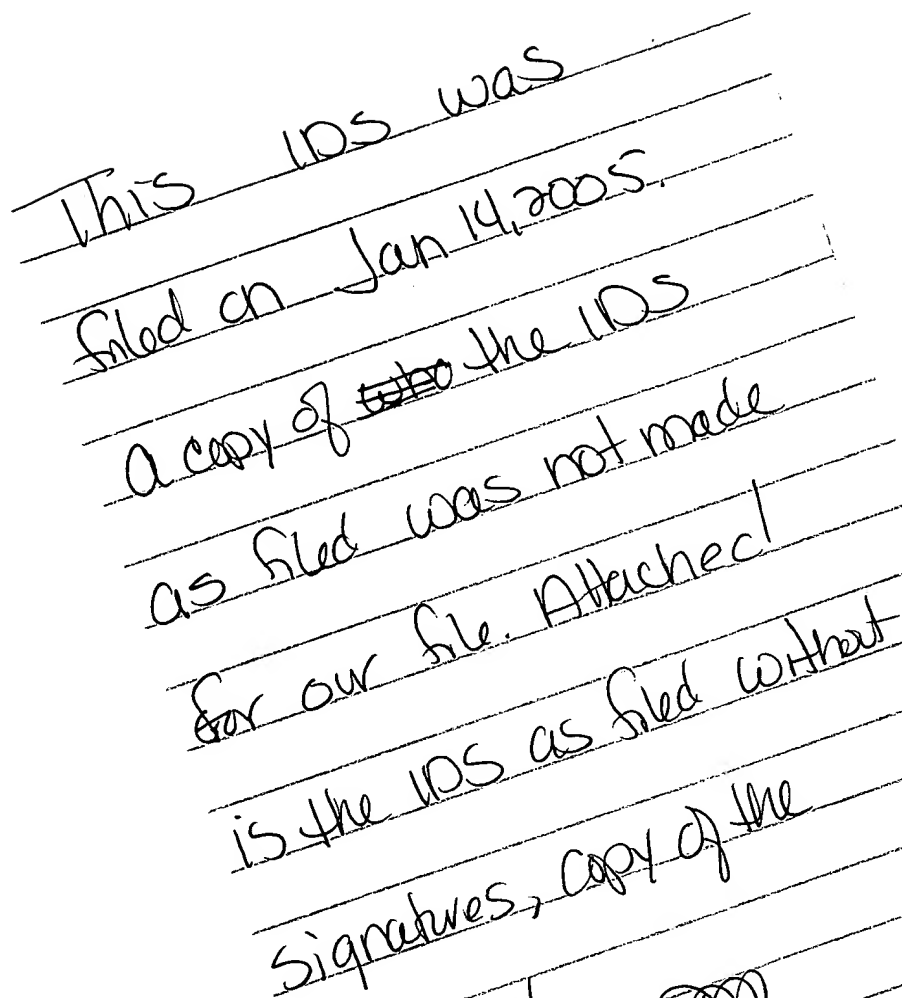 This IDS was
filed on Jan 14, 2005.
a copy of the IDS
as filed was not made
for our file. Attached
is the IDS as filed without
signatures, copy of the